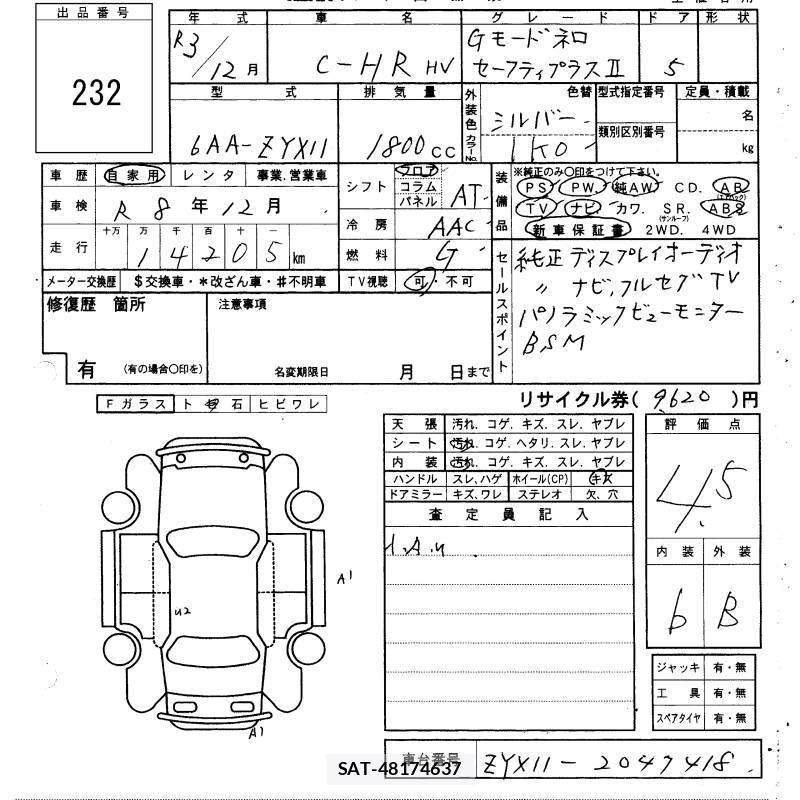 出品番号
232
年 式 車 名 グレード ドア 形状
R3/12月 C-HR HV Gモードネロ セーフティプラスⅡ 5
型 式 排気量 外装色 カラーNo. 色替 型式指定番号 定員・積載
6AA-ZYX11 1800cc シルバー 1K0 類別区別番号 名 kg
車歴 自家用 レンタ 事業.営業車
車検 R8年12月
走行 十万 万 千 百 十 一
14205km
シフト フロア コラム パネル AT
冷房 AAC
燃料 G
TV視聴 可・不可
装備品 ※純正のみ〇印をつけて下さい。
PS PW. 純AW CD. AB(エアバッグ)
TV ナビ. カワ. SR.(サンルーフ) ABS
新車保証書 2WD. 4WD
メーター交換歴 $交換車・*改ざん車・#不明車
セールスポイント
純正ディスプレイオーディオ
〃 ナビ,フルセグTV
パノラミックビューモニター
BSM
修復歴 箇所
有 (有の場合〇印を)
注意事項
名変期限日 月 日まで
リサイクル券( 9,620 )円
Fガラス ト 石 ヒビワレ
天張 汚れ. コゲ. キズ. スレ. ヤブレ
シート 汚れ. コゲ. ヘタリ. スレ. ヤブレ
内装 汚れ. コゲ. キズ. スレ. ヤブレ
ハンドル スレ.ハゲ ホイール(CP) キズ
ドアミラー キズ.ワレ ステレオ 欠.穴
査定員記入
評価点
4.5
内装 外装
6 B
A1
U2
A1
ジャッキ 有・無
工具 有・無
スペアタイヤ 有・無
車台番号 ZYX11-2047418
SAT-48174637